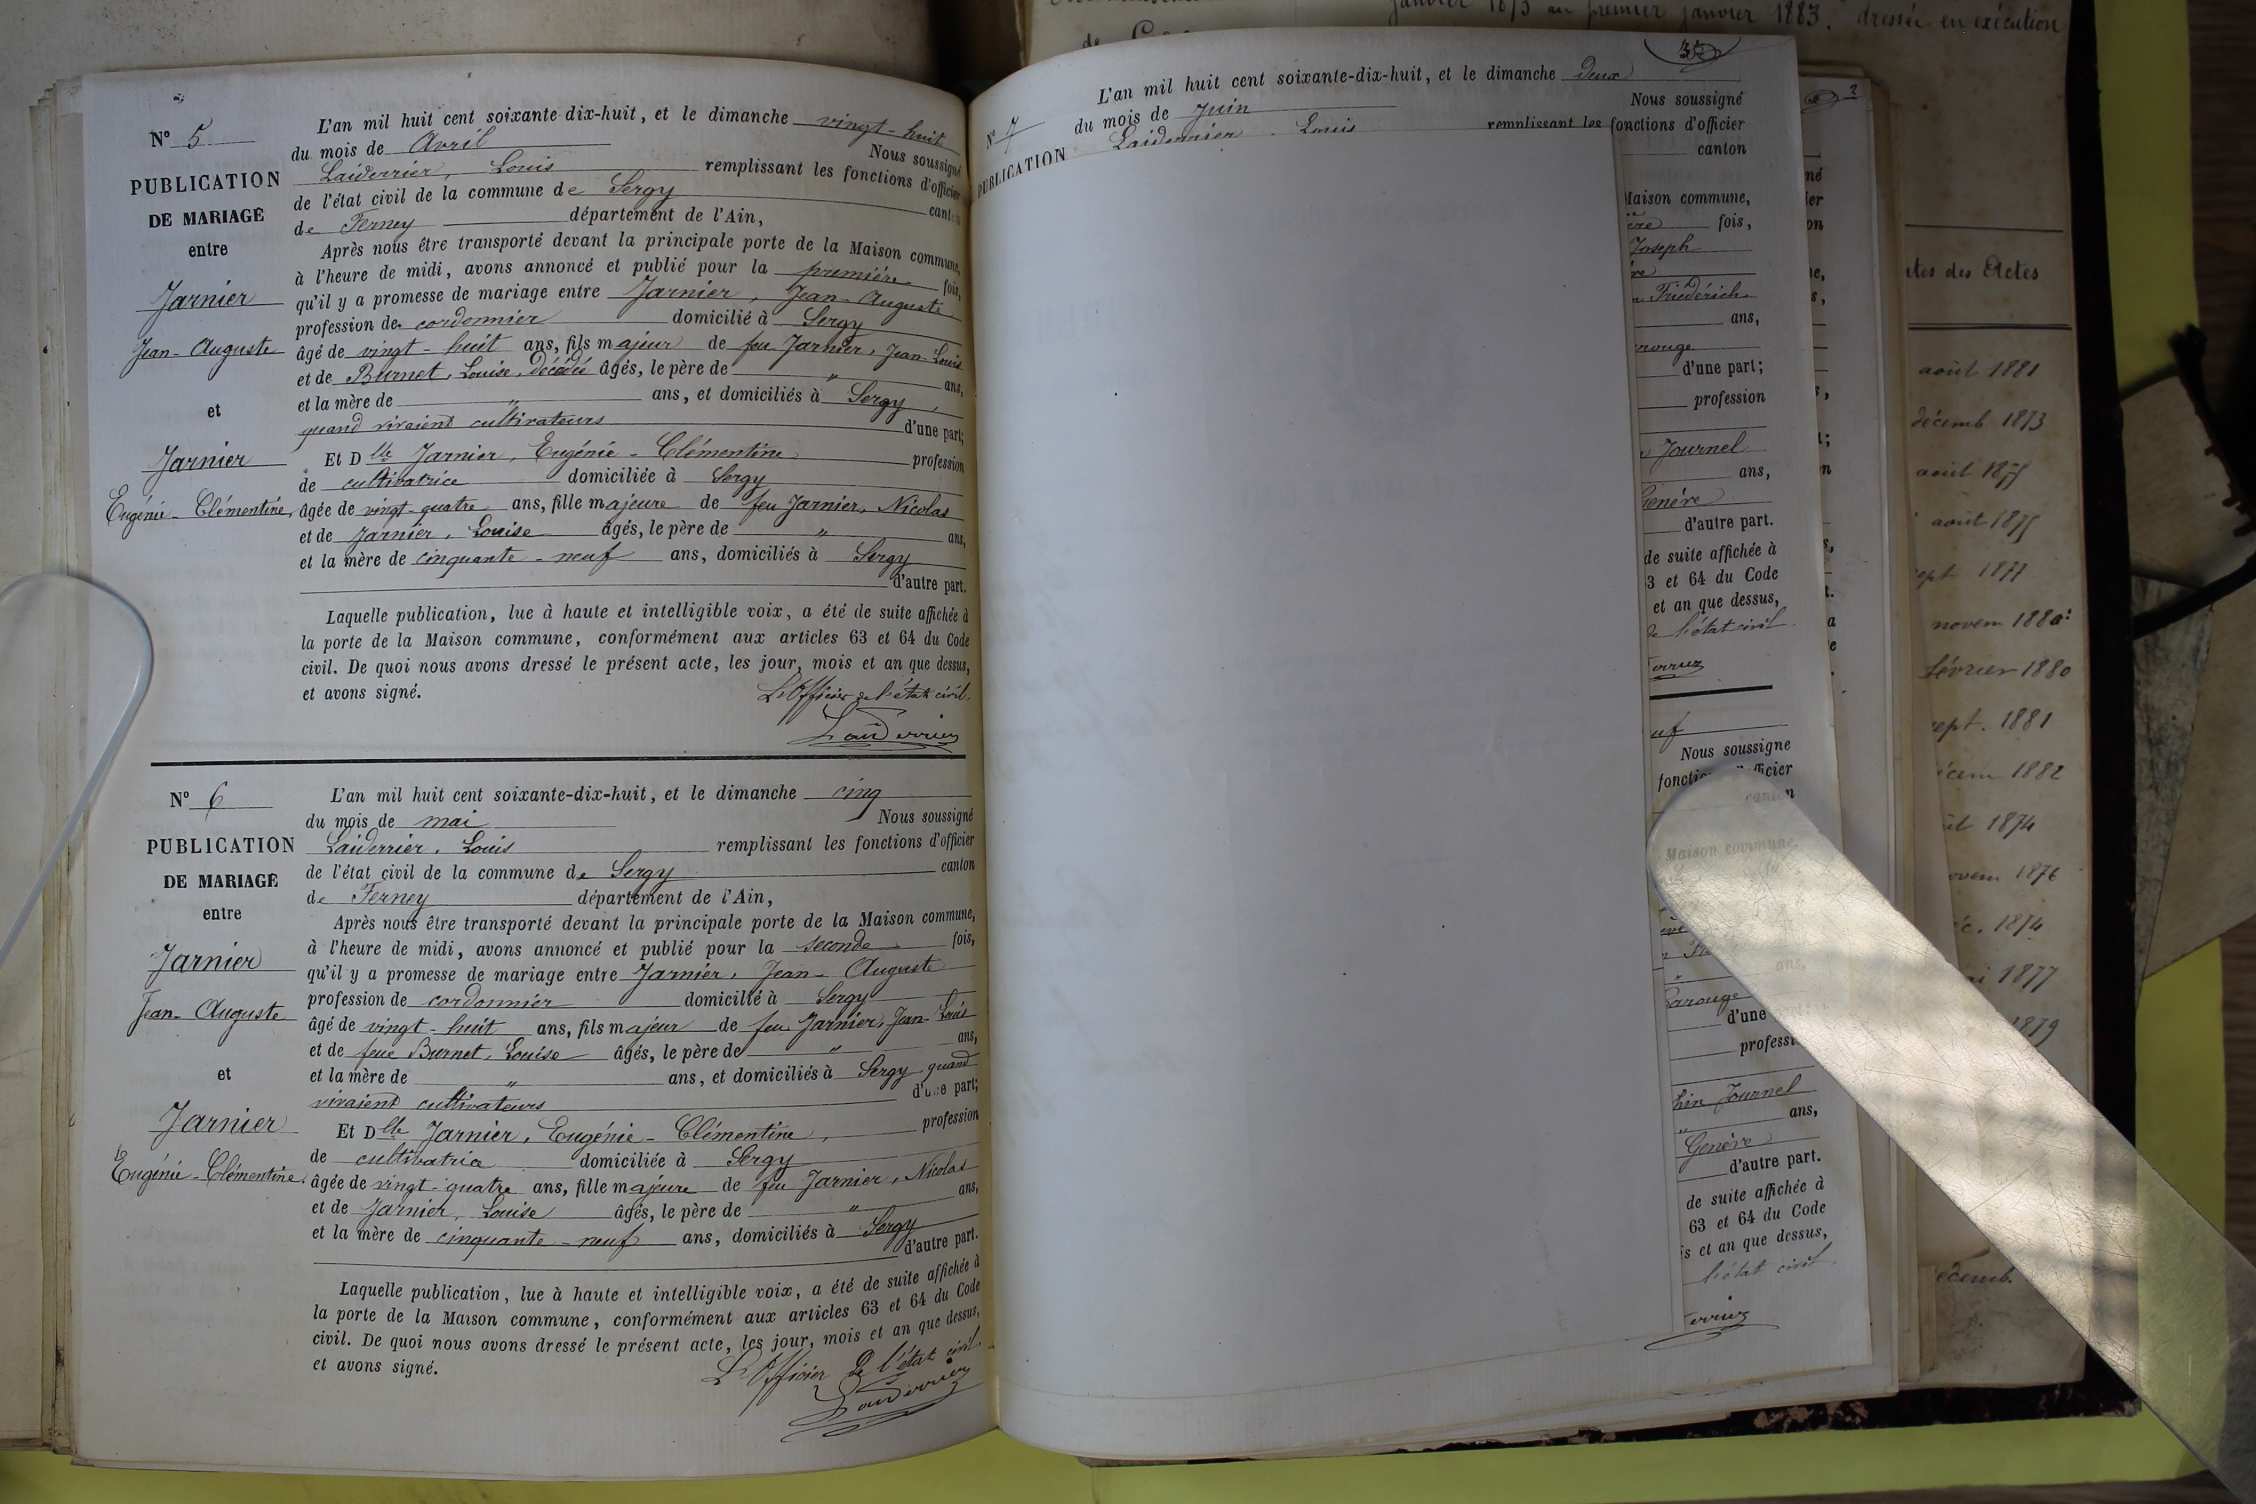 N° 5
PUBLICATION
DE MARIAGE
entre
Jarnier
Jean-Auguste
et
Jarnier
Eugénie-Clémentine,
L'an mil huit cent soixante-dix-huit, et le dimanche vingt-huit
du mois de Avril Nous soussigné
Laiderrier, Louis remplissant les fonctions d'officier
de l'état civil de la commune de Sergy canton
de Ferney département de l'Ain,
Après nous être transporté devant la principale porte de la Maison commune,
à l'heure de midi, avons annoncé et publié pour la première fois,
qu'il y a promesse de mariage entre Jarnier, Jean-Auguste
profession de cordonnier domicilié à Sergy
âgé de vingt-huit ans, fils majeur de feu Jarnier, Jean-Louis
et de Burnet, Louise, décédée âgés, le père de " ans,
et la mère de " ans, et domiciliés à Sergy,
quand vivaient cultivateurs d'une part;
Et Dlle Jarnier, Eugénie-Clémentine profession
de cultivatrice domiciliée à Sergy
âgée de vingt-quatre ans, fille majeure de feu Jarnier, Nicolas
et de Jarnier, Louise âgés, le père de " ans,
et la mère de cinquante-neuf ans, domiciliés à Sergy
d'autre part.
Laquelle publication, lue à haute et intelligible voix, a été de suite affichée à
la porte de la Maison commune, conformément aux articles 63 et 64 du Code
civil. De quoi nous avons dressé le présent acte, les jour, mois et an que dessus,
et avons signé. L'Officier de l'état civil.
Laiderrier
N° 6
PUBLICATION
DE MARIAGE
entre
Jarnier
Jean-Auguste
et
Jarnier
Eugénie-Clémentine.
L'an mil huit cent soixante-dix-huit, et le dimanche cinq
du mois de mai Nous soussigné
Laiderrier, Louis remplissant les fonctions d'officier
de l'état civil de la commune de Sergy canton
de Ferney département de l'Ain,
Après nous être transporté devant la principale porte de la Maison commune,
à l'heure de midi, avons annoncé et publié pour la seconde fois,
qu'il y a promesse de mariage entre Jarnier, Jean-Auguste
profession de cordonnier domicilié à Sergy
âgé de vingt-huit ans, fils majeur de feu Jarnier, Jean-Louis
et de feue Burnet, Louise âgés, le père de " ans,
et la mère de " ans, et domiciliés à Sergy quand
vivaient cultivateurs d'une part;
Et Dlle Jarnier, Eugénie-Clémentine, profession
de cultivatrice domiciliée à Sergy
âgée de vingt-quatre ans, fille majeure de feu Jarnier, Nicolas
et de Jarnier, Louise âgés, le père de " ans,
et la mère de cinquante-neuf ans, domiciliés à Sergy
d'autre part.
Laquelle publication, lue à haute et intelligible voix, a été de suite affichée à
la porte de la Maison commune, conformément aux articles 63 et 64 du Code
civil. De quoi nous avons dressé le présent acte, les jour, mois et an que dessus,
et avons signé. L'Officier de l'état civil.
Laiderrier
N° 7
PUBLICATION
L'an mil huit cent soixante-dix-huit, et le dimanche deux
du mois de Juin Nous soussigné
Laiderrier Louis remplissant les fonctions d'officier
canton
Maison commune,
fois,
Joseph
Friedérich
ans,
d'une part;
profession
Journel
ans,
Genève
d'autre part.
de suite affichée à
3 et 64 du Code
et an que dessus,
de l'état civil.
Nous soussigné
canton
Maison commune,
ans,
Carouge
d'une
Journel
" ans,
Genève
d'autre part.
de suite affichée à
63 et 64 du Code
is et an que dessus,
l'état civil.
janvier 1873 au premier janvier 1883. dressée en exécution
des Actes
août 1881
décemb 1873
août 1875
août 1875
sept 1877
novem 1880
février 1880
sept. 1881
1882
1874
1876
1874
1877
1879